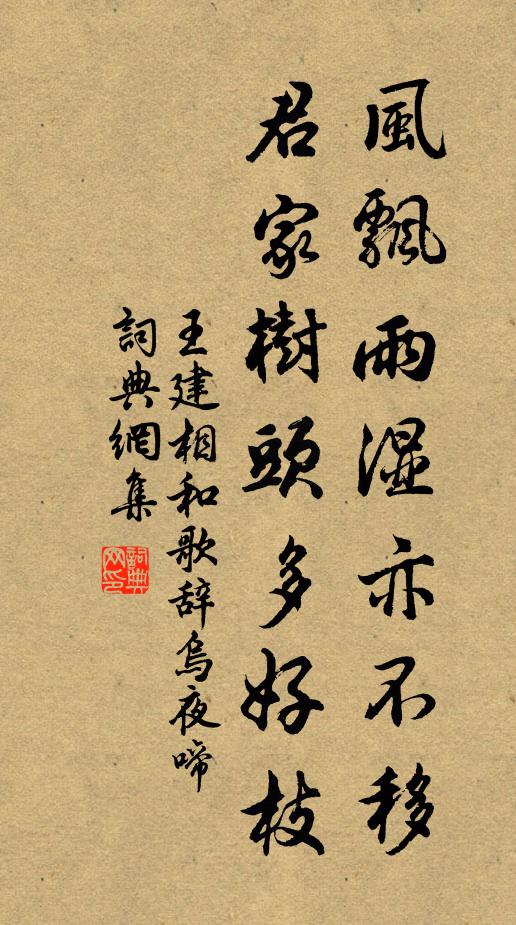 風飄雨湿亦不移
君家樹頭多好枝
王建相和歌辞烏夜啼
詞典網集
詞典
网印